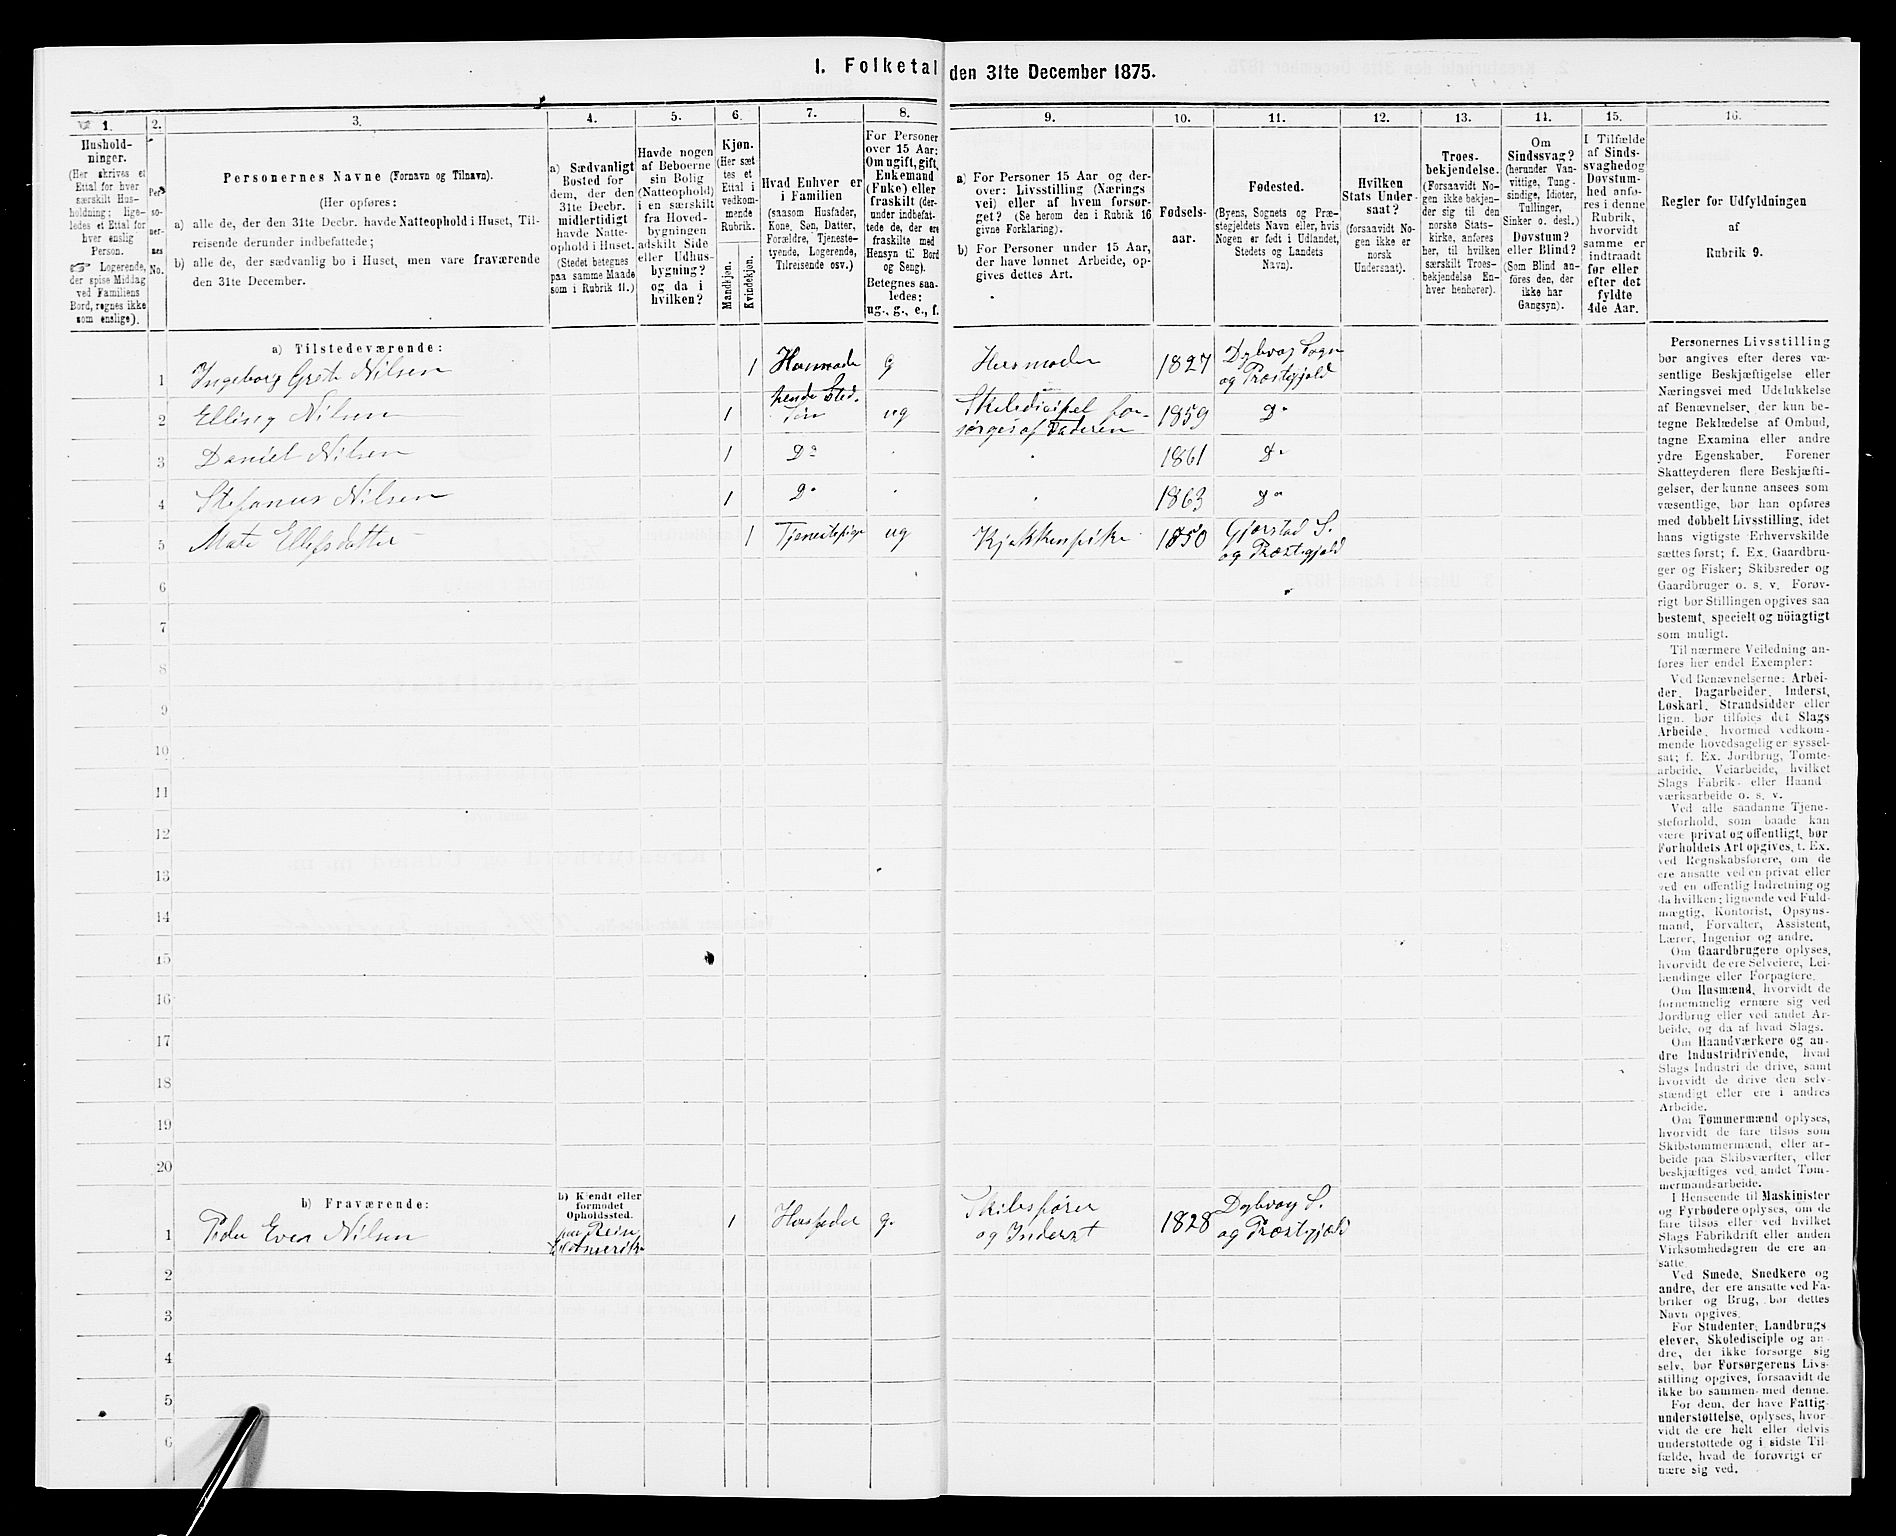 I. Folketal den 31te December 1875.
1.
Hushold-
ninger.
(Her skrives et
Ettal for hver
særskilt Hus-
holdning; lige-
ledes et Ettal for
hver enslig
Person.
☞ Logerende,
der spise Middag
ved Familiens
Bord, regnes ikke
som enslige).
2.
Per-
so-
ner-
nes
No.
3.
Personernes Navne (Fornavn og Tilnavn).
(Her opføres:
a) alle de, der den 31te Decbr. havde Natteophold i Huset, Til-
reisende derunder indbefattede;
b) alle de, der sædvanlig bo i Huset, men vare fraværende
den 31te December.
4.
a) Sædvanligt
Bosted for
dem, der den
31te Decbr.
midlertidigt
havde Natte-
ophold i Huset.
(Stedet betegnes
paa samme Maade
som i Rubrik 11.)
5.
Havde nogen
af Beboerne
sin Bolig
(Natteophold)
i en særskilt
fra Hoved-
bygningen
adskilt Side
eller Udhus-
bygning?
og da i
hvilken?
6.
Kjøn.
(Her sæt-
tes et
Ettal i
vedkom-
mende
Rubrik.
Mandkjøn.
Kvindekjøn.
7.
Hvad Enhver er
i Familien
(saasom Husfader,
Kone, Søn, Datter,
Forældre, Tjeneste-
tyende, Logerende,
Tilreisende osv.)
8.
For Personer
over 15 Aar:
Om ugift, gift,
Enkemand
(Enke) eller
fraskilt (der-
under indbefat-
tede de, der ere
fraskilte med
Hensyn til Bord
og Seng).
Betegnes saa-
ledes:
ug., g., e., f.
9.
a) For Personer 15 Aar og der-
over: Livsstilling (Nærings
vei) eller af hvem forsør-
get? (Se herom den i Rubrik 16
givne Forklaring).
b) For Personer under 15 Aar,
der have lønnet Arbeide, op-
gives dettes Art.
10.
Fødsels-
aar.
11.
Fødested.
(Byens, Sognets og Præ-
stegjeldets Navn eller, hvis
Nogen er født i Udlandet,
Stedets og Landets
Navn).
12.
Hvilken
Stats Under-
saat?
(forsaavidt No-
gen ikke er
norsk
Undersaat).
13.
Troes-
bekjendelse.
(Forsaavidt No-
gen ikke bekjen-
der sig til den
norske Stats-
kirke, anføres
her, til hvilken
særskilt Troes-
bekjendelse En-
hver henhører).
14.
Om
Sindssvag?
(herunder Van-
vittige, Tung-
sindige, Idioter,
Tullinger,
Sinker o. desl.)
Døvstum?
eller Blind?
(Som Blind an-
føres den, der
ikke har
Gangsyn).
15.
I Tilfælde
af Sinds-
svaghed og
Døvstum-
hed anfø-
res i denne
Rubrik,
hvorvidt
samme er
indtraadt
før eller
efter det
fyldte
4de Aar.
16.
Regler for Udfyldningen
af
Rubrik 9.
a) Tilstedeværende:
1 Ingeborg Nilsen 1 g Husmoder 1827 Dybvag Sogn
og Præstegjeld
2 Nilsen 1 Søn ug Skoledicipel for-
sørges af Faderen 1859 Do
3 Daniel Nilsen 1 Do 1861 Do
4 Stefanus Nilsen 1 Do 1863 Do
5 Mate Ellefsdatter 1 Tjenestepige ug Kjøkkenpike 1850 Gjerstad S.
og Præstegjeld
6
7
8
9
10
11
12
13
14
15
16
17
18
19
20
b) Fraværende:
b) Kjendt eller
formodet
Opholdssted.
1 Peder Even Nilsen paa Reise
til Amerika 1 Husfader g. Skibsfører
og Inderst 1828 Dybvag S.
og Præstegjeld
2
3
4
5
6
Personernes Livsstilling
bør angives efter deres væ-
sentlige Beskjæftigelse eller
Næringsvei med Udelukkelse
af Benævnelser, der kun be-
tegne Beklædelse af Ombud,
tagne Examina eller andre
ydre Egenskaber. Forener
Skatteyderen flere Beskjæfti-
gelser, der kunne ansees som
væsentlige, bør han opføres
med dobbelt Livsstilling, idet
hans vigtigste Erhvervskilde
sættes først; f. Ex. Gaardbru-
ger og Fisker; Skibsreder og
Gaardbruger o. s. v. Forøv-
rigt bør Stillingen opgives saa
bestemt, specielt og nöiagtigt
som muligt.
Til nærmere Veiledning an-
føres her endel Exempler:
Ved Benævnelserne: Arbei-
der, Dagarbeider, Inderst,
Løskarl, Strandsidder eller
lign. bør tilføies det Slags
Arbeide, hvormed vedkom-
mende hovedsagelig er syssel-
sat; f. Ex. Jordbrug, Tomte-
arbeide, Veiarbeide, hvilket
Slags Fabrik- eller Haand-
værksarbeide o. s. v.
Ved alle saadanne Tjene-
steforhold, som baade kan
være privat og offentligt, bør
Forholdets Art opgives, t. Ex.
ved Regnskabsførere, om de
ere ansatte ved en privat eller
ved en offentlig Indretning og
da hvilken; lignende ved Fuld-
mægtig, Kontorist, Opsyns-
mand, Forvalter, Assistent,
Lærer, Ingeniør og andre.
Om Gaardbrugere oplyses,
hvorvidt de ere Selveiere, Lei-
lændinge eller Forpagtere.
Om Husmænd, hvorvidt de
fornemmelig ernære sig ved
Jordbrug eller ved andet Ar-
beide, og da af hvad Slags.
Om Haandværkere og an-
dre Industridrivende, hvad
Slags Industri de drive, samt
hvorvidt de drive den selv-
stændigt eller ere i andres
Arbeide.
Om Tømmermænd oplyses,
hvorvidt de fare tilsøs som
Skibstømmermænd, eller ar-
beide paa Skibsværfter, eller
beskjæftiges ved andet Tøm-
mermandsarbeide.
I Henseende til Maskinister
og Fyrbødere oplyses, om de
fare tilsøs eller ved hvilket
Slags Fabrikdrift eller anden
Virksomhedsgren de ere an-
satte.
Ved Smede, Snedkere og
andre, der ere ansatte ved Fa-
briker og Brug, bør dettes
Navn opgives.
For Studenter, Landbrugs
elever, Skoledisciple og an-
dre, der ikke forsørge sig
selv, bør Forsørgerens Livs-
stilling opgives, forsaavidt de
ikke bo sammen med denne.
For dem, der have Fattig-
understøttelse, oplyses, hvor-
vidt de ere helt eller delvis
understøttede og i sidste Til-
fælde, hvad de forøvrigt er-
nære sig ved.